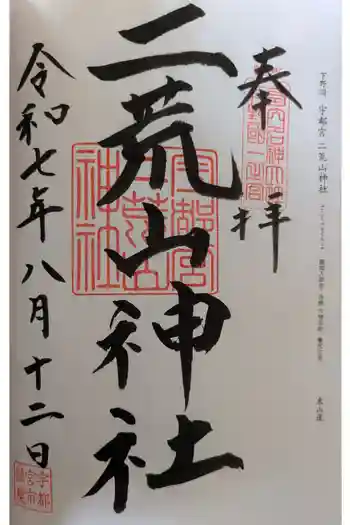 下野国 宇都宮 二荒山神社
東山道
奉拝
二荒山神社
宇都宮
二荒山
神社
令和七年八月十二日